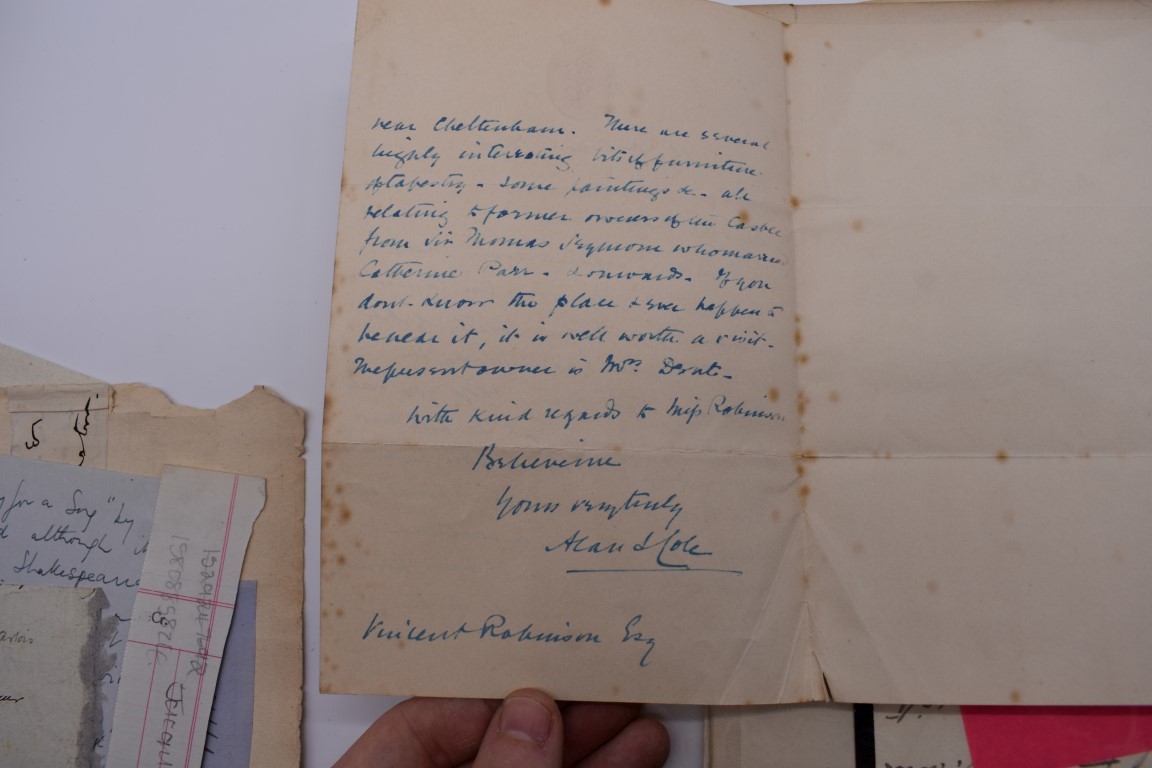 near Cheltenham. There are several
highly interesting bits of furniture
& tapestry - some paintings &c - all
relating to former owners of the Castle
from Sir Thomas Seymour who married
Catherine Parr - & onwards. If you
dont know the place & ever happen to
be near it, it is well worth a visit -
The present owner is Mrs. Dent -
With kind regards to Miss Robinson
Believe me
Yours very truly
Alan S Cole
Vincent Robinson Esq
for a Song" by
although
Shakespeare